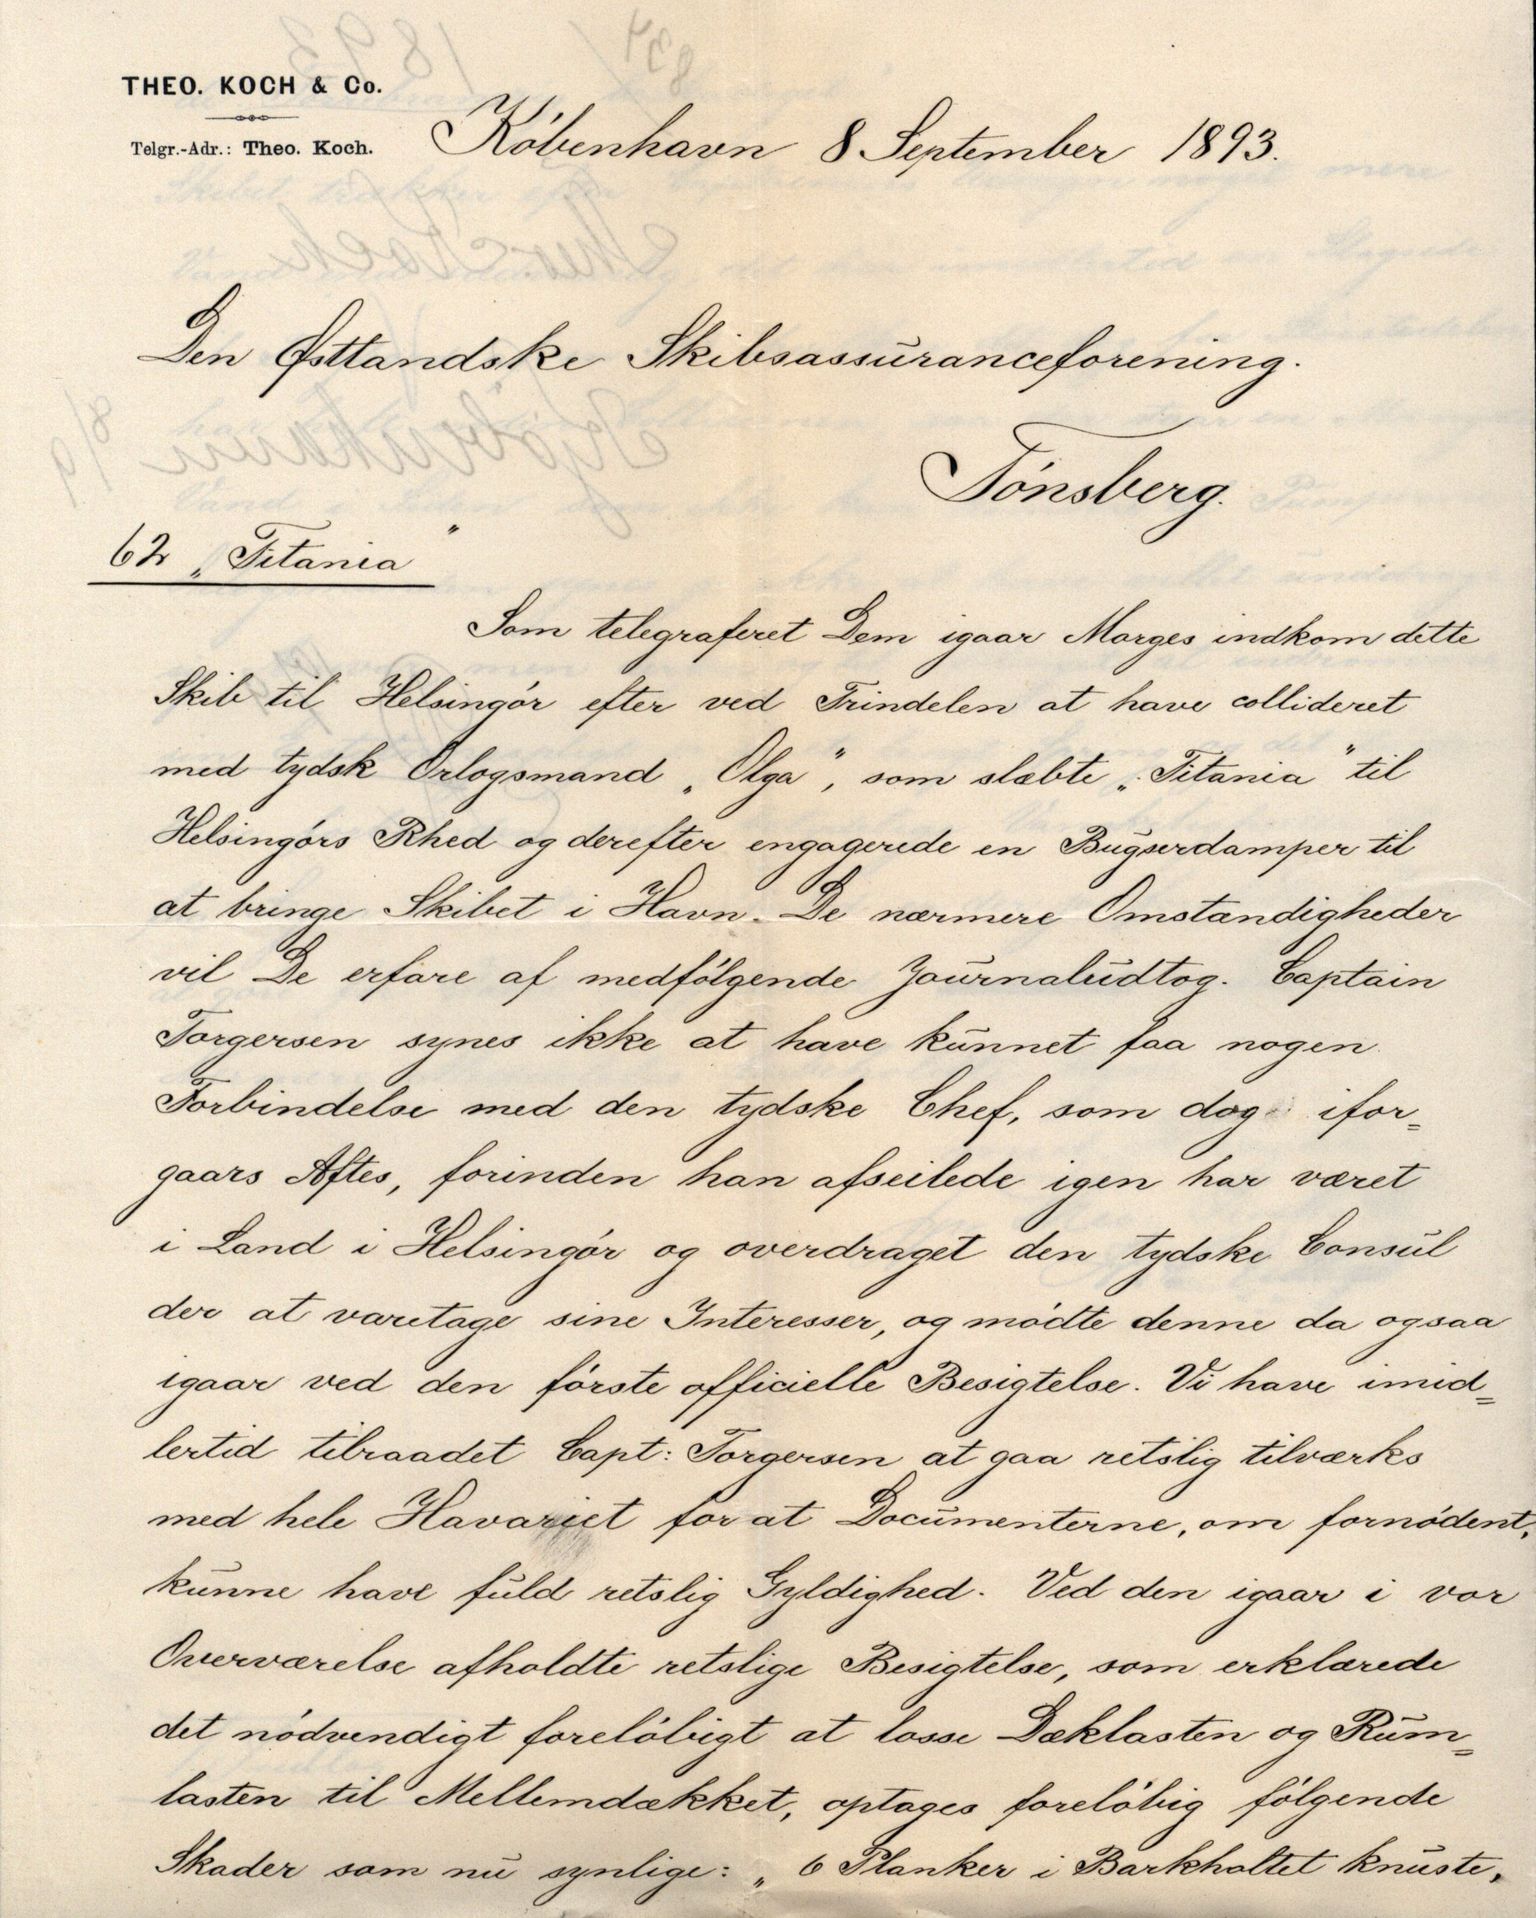 THEO. KOCH & Co.
Telgr.-Adr.: Theo. Koch.
København 8 September 1893.
Den Østlandske Skibsassuranceforening.
Tønsberg.
62 „Titania"
Som telegraferet Dem igaar Morges indkom dette
Skib til Helsingør efter ved Trindelen at have collideret
med tydsk Orlogsmand „Olga", som slæbte „Titania" til
Helsingørs Rhed og derefter engagerede en Bugserdamper til
at bringe Skibet i Havn. De nærmere Omstændigheder
vil De erfare af medfølgende Journaludtog. Captain
Torgersen synes ikke at have kunnet faa nogen
Forbindelse med den tydske Chef, som dog ifor=
gaars Aftes, forinden han afseilede igen har været
i Land i Helsingør og overdraget den tydske Consul
der at varetage sine Interesser, og mødte denne da ogsaa
igaar ved den første officielle Besigtelse. Vi have imid=
lertid tilraadet Capt: Torgersen at gaa retslig tilværks
med hele Havariet for at Documenterne, om fornødent,
kunne have fuld retslig Gyldighed. Ved den igaar i vor
Overværelse afholdte retslige Besigtelse, som erklærede
det nødvendigt foreløbigt at losse Dæklasten og Rum=
lasten til Mellemdækket, optages foreløbig følgende
Skader som nu synlige: „6 Planker i Barkholtet knuste,